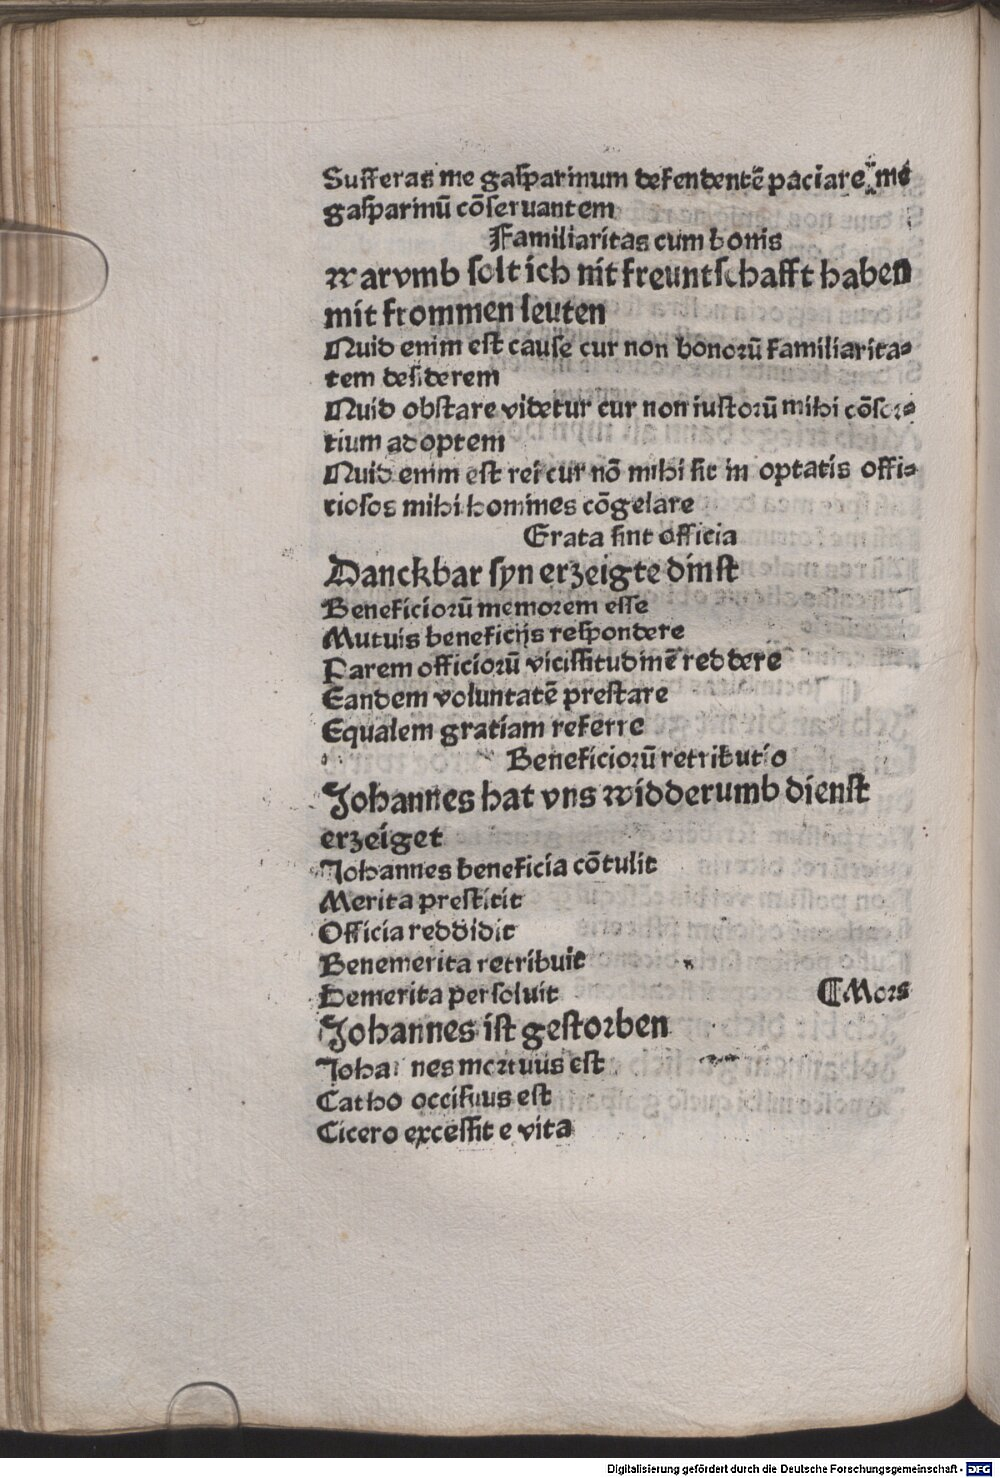 Sufferas me gasparinum defendentē paciare me
gasparinū cōseruantem
Familiaritas cum bonis
Warvmb solt ich nit freuntschafft haben
mit frommen leuten
Quid enim est cause cur non bonorū familiarita⸗
tem desiderem
Quid obstare videtur cur non iustorū mihi cōsor⸗
tium adoptem
Quid enim est rei cur nō mihi sit in optatis offi⸗
tiosos mihi homines cōgelare
Grata sint officia
Danckbar syn erzeigte dinst
Beneficiorū memorem esse
Mutuis beneficijs respondere
Parem officiorū vicissitudinē reddere
Eandem voluntatē prestare
Equalem gratiam referre
Beneficiorū retributio
Johannes hat vns widderumb dienst
erzeiget
Johannes beneficia cōtulit
Merita prestitit
Officia reddidit
Benemerita retribuit
Demerita persoluit
¶Mors
Johannes ist gestorben
Johannes mortuus est
Catho occisuus est
Cicero excessit e vita
Digitalisierung gefördert durch die Deutsche Forschungsgemeinschaft - DFG